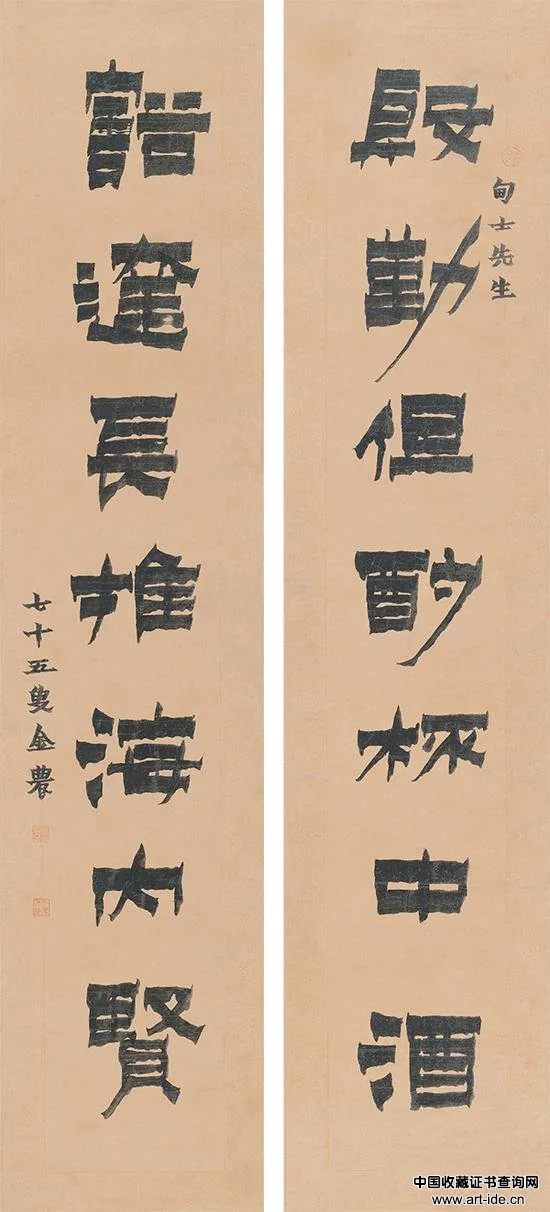 甸士先生
殷勤但酌杯中酒
豁達長推海内賢
七十五叟金農
中国收藏证书查询网
www.art-ide.cn